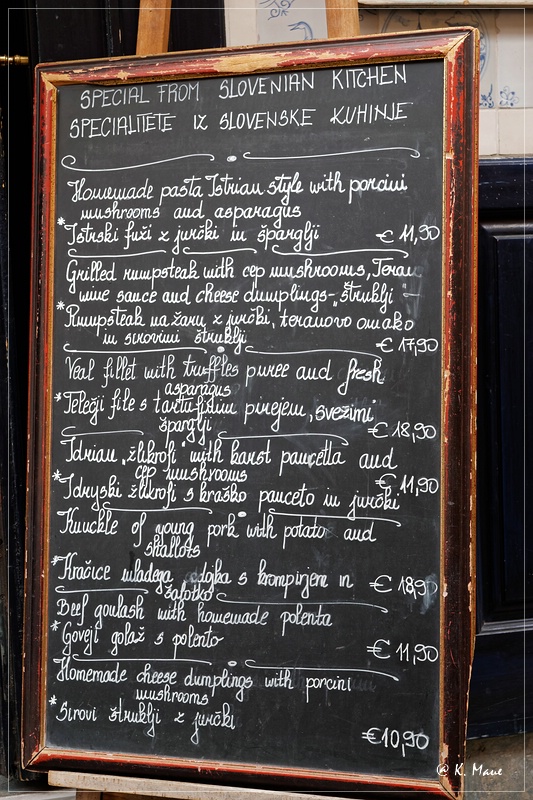 SPECIAL FROM SLOVENIAN KITCHEN
SPECIALITETE IZ SLOVENSKE KUHINJE
Homemade pasta Istrian style with porcini
mushrooms and asparagus
*Istrski fuži z jurčki in šparglji € 11,90
Grilled rumpsteak with cep mushrooms, Teran
wine sauce and cheese dumplings-„štruklji"-
*Rumpsteak na žaru z jurčki, teranovo omako
in sirovimi štruklji
€ 17,90
Veal fillet with truffles puree and fresh
asparagus
*Telečji file s tartufjinim pirejem, svežimi
šparglji
€ 18,90
Idrian „žlikrofi" with karst pancetta and
cep mushrooms
€ 11,90
*Idryski žlikrofi s kraško panceto in jurčki
Knuckle of young pork with potato and
shallots
*Kračice mladega odojka s krompirjem in € 18,90
šalotko
Beef goulash with homemade polenta
*Goveji golaž s polento
€ 11,90
Homemade cheese dumplings with porcini
mushrooms
*Sirovi štruklji z jurčki
€10,90
@ K. Maue